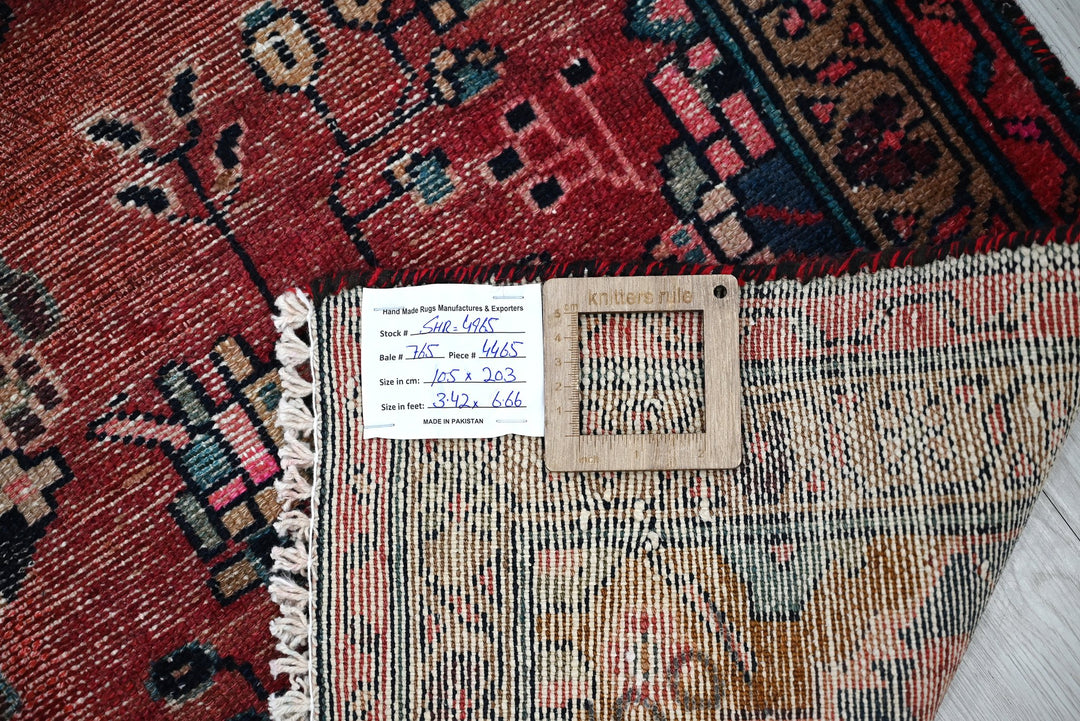 Hand Made Rugs Manufactures & Exporters
Stock # SHR = 4965
Bale # 765 Piece # 4465
Size in cm: 105 x 203
Size in feet: 3.42 x 6.66
MADE IN PAKISTAN
knitters rule
cm
5
4
3
2
1
inch 1 2